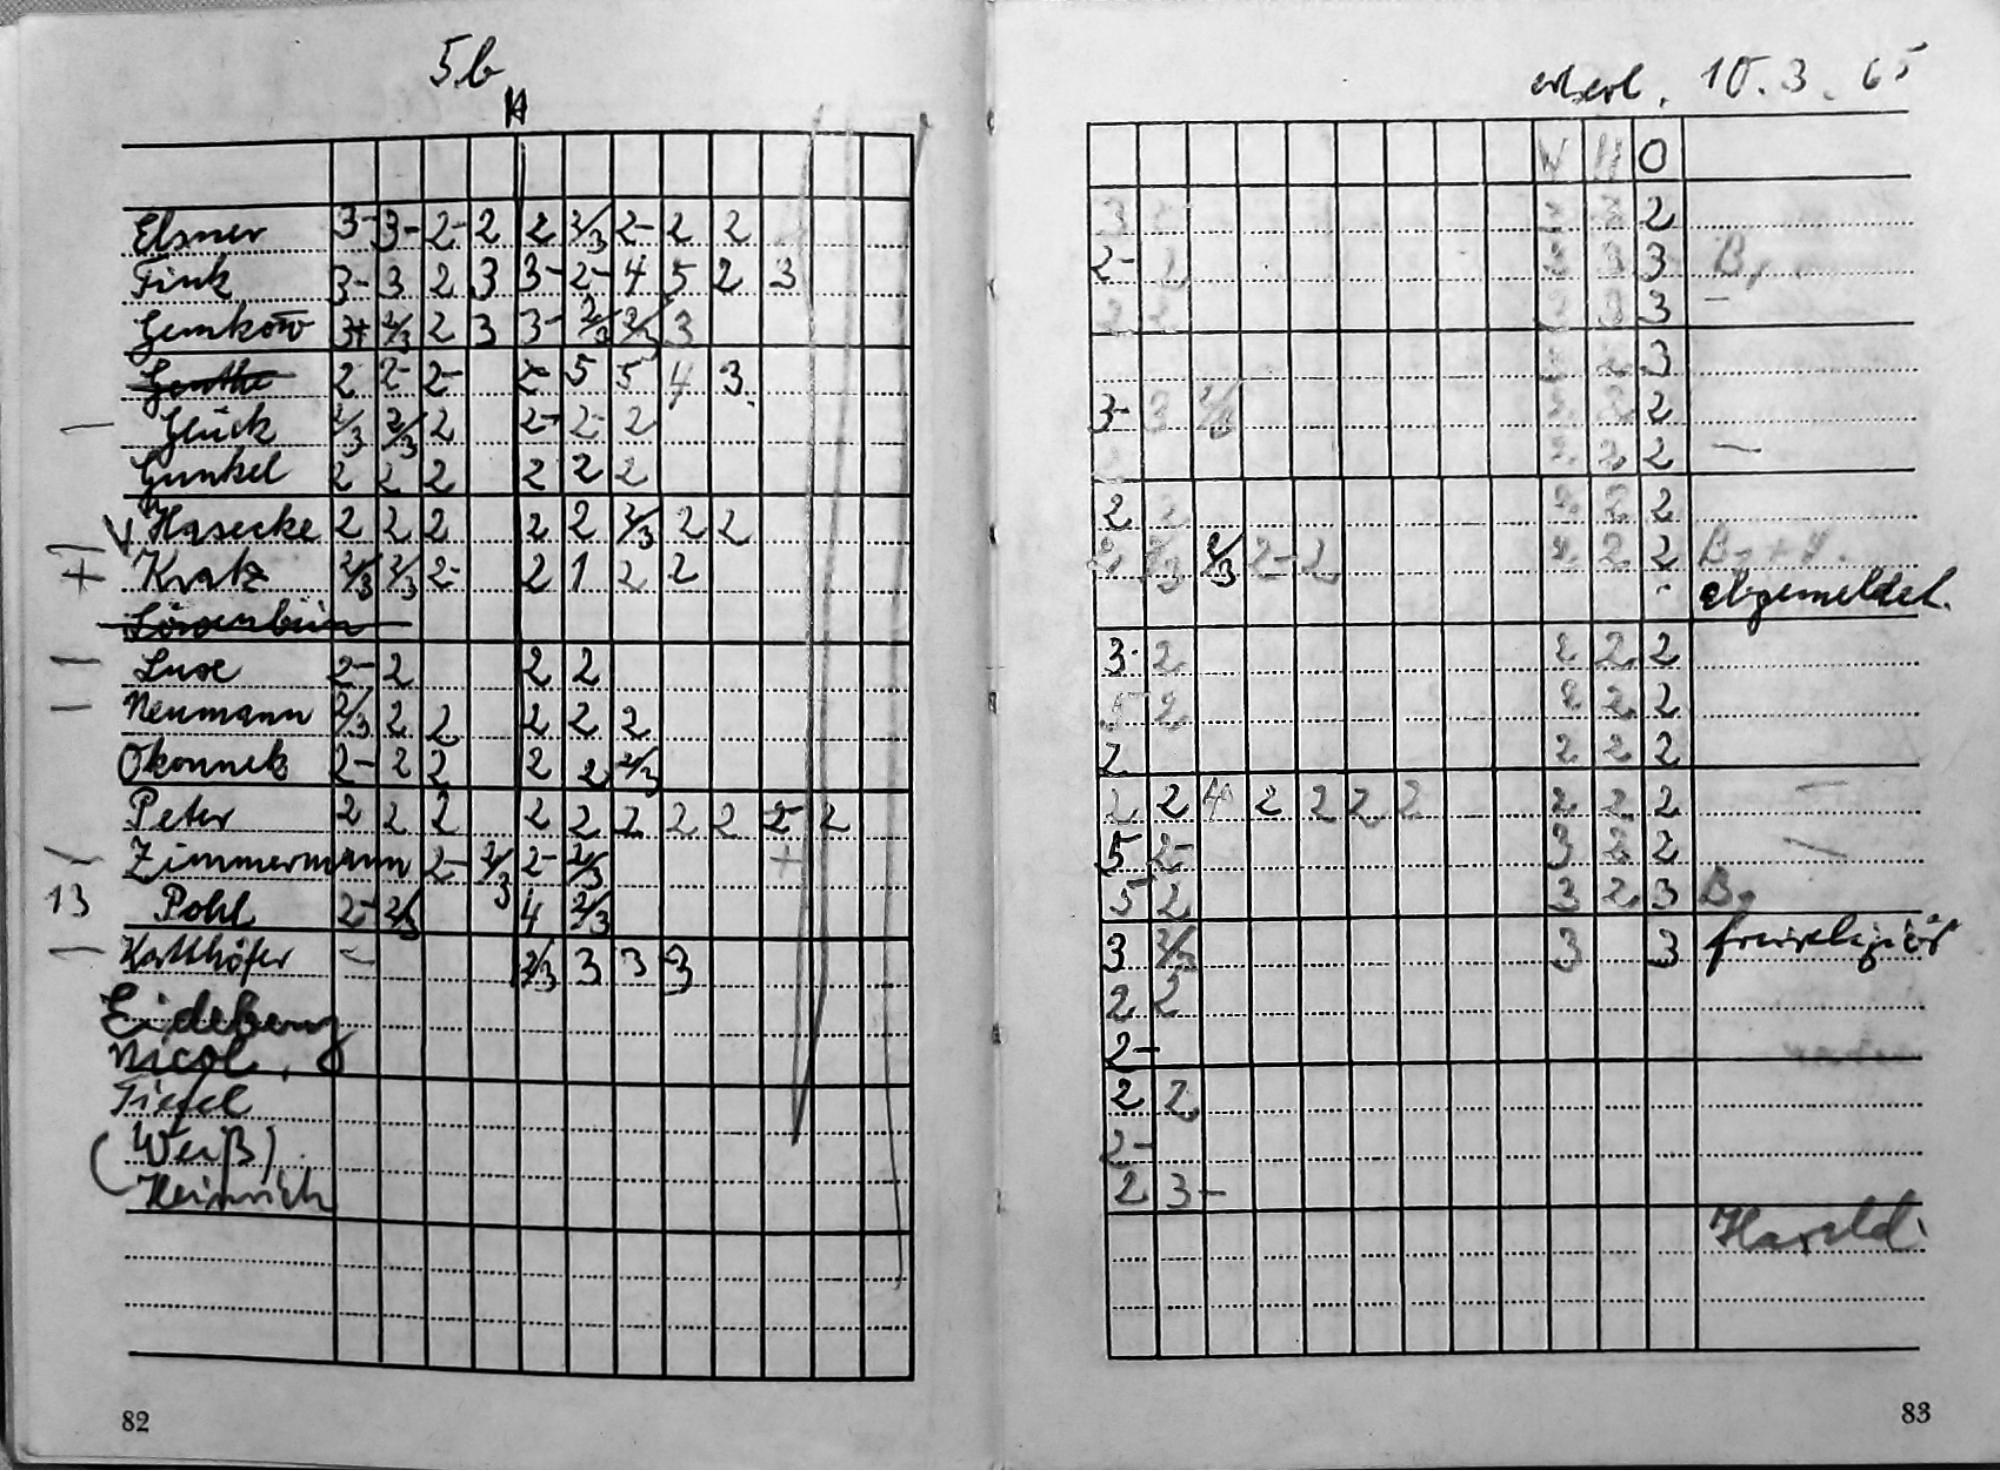 5b
H
Elsner 3- 3- 2- 2 2 2/3 2- 2 2
Fink 3- 3 2 3 3- 2- 4 5 2 3
Gemkow 3+ 2/3 2 3 3- 2/3 2/3 3
Genthe 2 2- 2- 2- 5 5 4 3
— Glück 2/3 2/3 2 2- 2- 2
Gunkel 2 2 2 2 2 2
Hasecke 2 2 2 2 2 2/3 2 2
+ Kratz 2/3 2/3 2- 2 1 2 2
— Luse 2- 2 2 2
— Neumann 2/3 2 2 2 2 2
Okonnek 2- 2 2 2 2 2/3
Peter 2 2 2 2 2 2 2 2 2- 2
Zimmermann 2- 2/3 2- 2/3 +
13 Pohl 2- 2/3 4 2/3
— Katthöfer - 2/3 3 3 3
Eideberg
Nicol,
Tiefel
(Weiß)
Heinrich
82
10.3.65
W H O
3 2 2 2 2
2- 2 3 3 3 B,
2 2 3 3 3 —
2 2 3
3- 3 2/3 2 2 2
2 2 2 —
2 2 2 2 2
2 2/3 2/3 2- 2 2 2 2
abgemeldet.
3- 2 2 2 2
5 2 2 2 2
2 2 2 2
2 2 4 2 2 2 2 2 2 2 —
5 2- 3 2 2 —
5 2 3 2 3 B,
3 2/3 3 3 freireligiös
2 2
2-
2 2
2-
2 3-
Harald
83